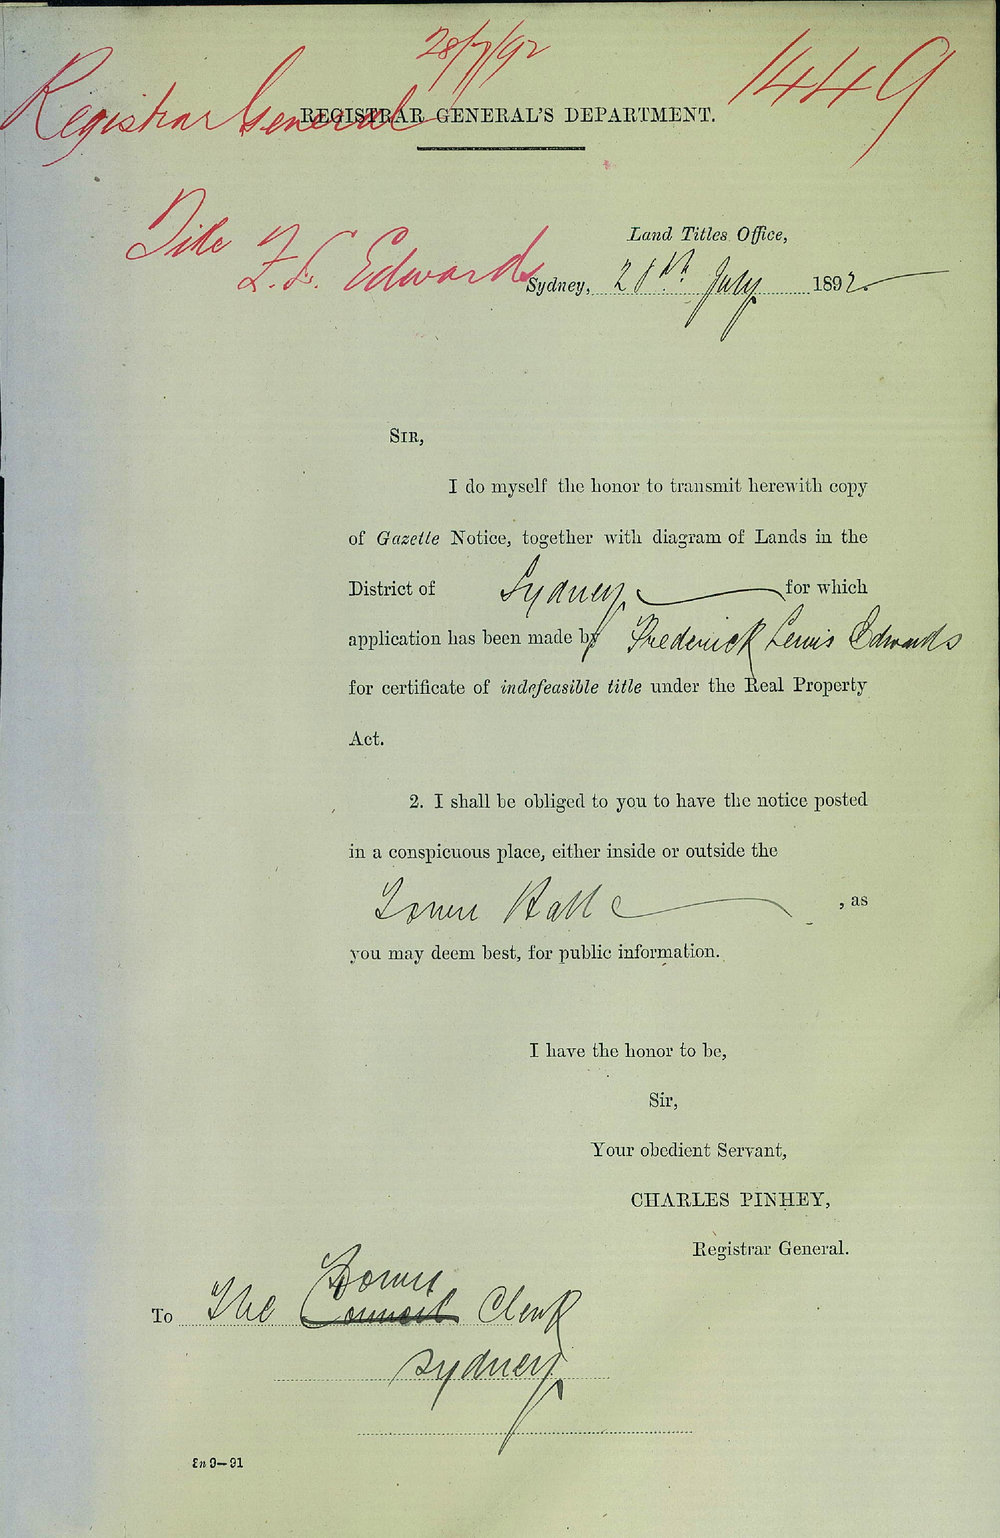 28/7/92
1449
Registrar General
REGISTRAR GENERAL'S DEPARTMENT.
Title
F. L. Edwards
Land Titles Office,
Sydney, 28th July 1892.
SIR,
I do myself the honor to transmit herewith copy
of Gazette Notice, together with diagram of Lands in the
District of Sydney for which
application has been made by Frederick Lewis Edwards
for certificate of indefeasible title under the Real Property
Act.
2. I shall be obliged to you to have the notice posted
in a conspicuous place, either inside or outside the
Town Hall , as
you may deem best, for public information.
I have the honor to be,
Sir,
Your obedient Servant,
CHARLES PINHEY,
Registrar General.
Town
To The Council Clerk
Sydney
9—91